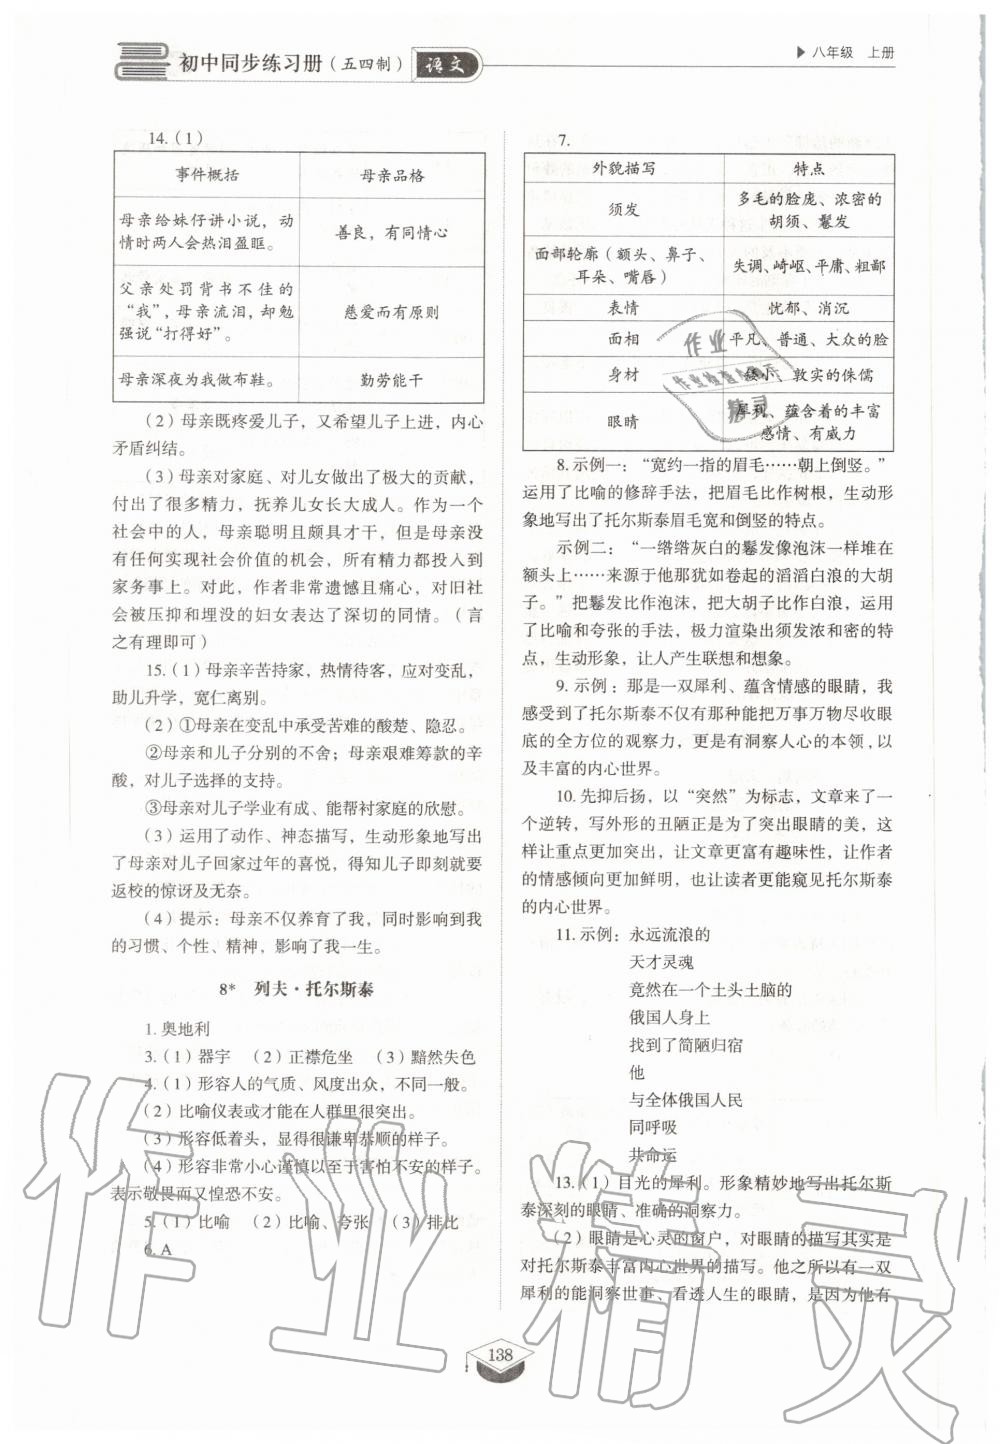 初中同步练习册（五四制） 语文
八年级 上册
14.（1）
事件概括 母亲品格
母亲给妹仔讲小说，动
情时两人会热泪盈眶。
善良，有同情心
父亲处罚背书不佳的
“我”，母亲流泪，却勉
强说“打得好”。
慈爱而有原则
母亲深夜为我做布鞋。 勤劳能干
（2）母亲既疼爱儿子，又希望儿子上进，内心
矛盾纠结。
（3）母亲对家庭、对儿女做出了极大的贡献，
付出了很多精力，抚养儿女长大成人。作为一个
社会中的人，母亲聪明且颇具才干，但是母亲没
有任何实现社会价值的机会，所有精力都投入到
家务事上。对此，作者非常遗憾且痛心，对旧社
会被压抑和埋没的妇女表达了深切的同情。（言
之有理即可）
15.（1）母亲辛苦持家，热情待客，应对变乱，
助儿升学，宽仁离别。
（2）①母亲在变乱中承受苦难的酸楚、隐忍。
②母亲和儿子分别的不舍；母亲艰难筹款的辛
酸，对儿子选择的支持。
③母亲对儿子学业有成、能帮衬家庭的欣慰。
（3）运用了动作、神态描写，生动形象地写出
了母亲对儿子回家过年的喜悦，得知儿子即刻就要
返校的惊讶及无奈。
（4）提示：母亲不仅养育了我，同时影响到我
的习惯、个性、精神，影响了我一生。
8* 列夫·托尔斯泰
1. 奥地利
3.（1）器宇 （2）正襟危坐 （3）黯然失色
4.（1）形容人的气质、风度出众，不同一般。
（2）比喻仪表或才能在人群里很突出。
（3）形容低着头，显得很谦卑恭顺的样子。
（4）形容非常小心谨慎以至于害怕不安的样子。
表示敬畏而又惶恐不安。
5.（1）比喻 （2）比喻、夸张 （3）排比
6. A
7.
外貌描写 特点
须发
多毛的脸庞、浓密的
胡须、鬈发
面部轮廓（额头、鼻子、
耳朵、嘴唇）
失调、崎岖、平庸、粗鄙
表情 忧郁、消沉
面相 平凡、普通、大众的脸
身材 矮小、敦实的侏儒
眼睛
犀利、蕴含着的丰富
感情、有威力
8. 示例一：“宽约一指的眉毛……朝上倒竖。”
运用了比喻的修辞手法，把眉毛比作树根，生动形
象地写出了托尔斯泰眉毛宽和倒竖的特点。
示例二：“一绺绺灰白的鬈发像泡沫一样堆在
额头上……来源于他那犹如卷起的滔滔白浪的大胡
子。”把鬈发比作泡沫，把大胡子比作白浪，运用
了比喻和夸张的手法，极力渲染出须发浓和密的特
点，生动形象，让人产生联想和想象。
9. 示例：那是一双犀利、蕴含情感的眼睛，我
感受到了托尔斯泰不仅有那种能把万事万物尽收眼
底的全方位的观察力，更是有洞察人心的本领，以
及丰富的内心世界。
10. 先抑后扬，以“突然”为标志，文章来了一
个逆转，写外形的丑陋正是为了突出眼睛的美，这
样让重点更加突出，让文章更富有趣味性，让作者
的情感倾向更加鲜明，也让读者更能窥见托尔斯泰
的内心世界。
11. 示例：永远流浪的
天才灵魂
竟然在一个土头土脑的
俄国人身上
找到了简陋归宿
他
与全体俄国人民
同呼吸
共命运
13.（1）目光的犀利。形象精妙地写出托尔斯
泰深刻的眼睛、准确的洞察力。
（2）眼睛是心灵的窗户，对眼睛的描写其实是
对托尔斯泰丰富内心世界的描写。他之所以有一双
犀利的能洞察世事、看透人生的眼睛，是因为他有
138
作业精灵